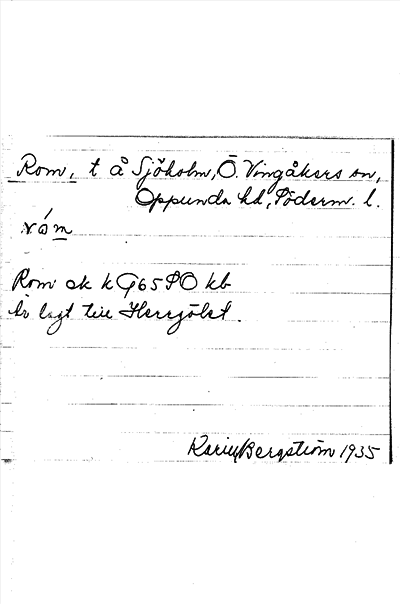 Rom, t å Sjöholm, Ö. Vingåkers sn,
Oppunda hd, Söderm. l.
róm
Rom ek k G65SO kb
Är lagt till Herrgölet.
Karin Bergström 1935